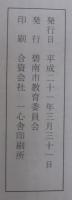 発行日　平成二十一年三月三十一日
発　行　碧南市教育委員会
印　刷　合資会社　一心舎印刷所